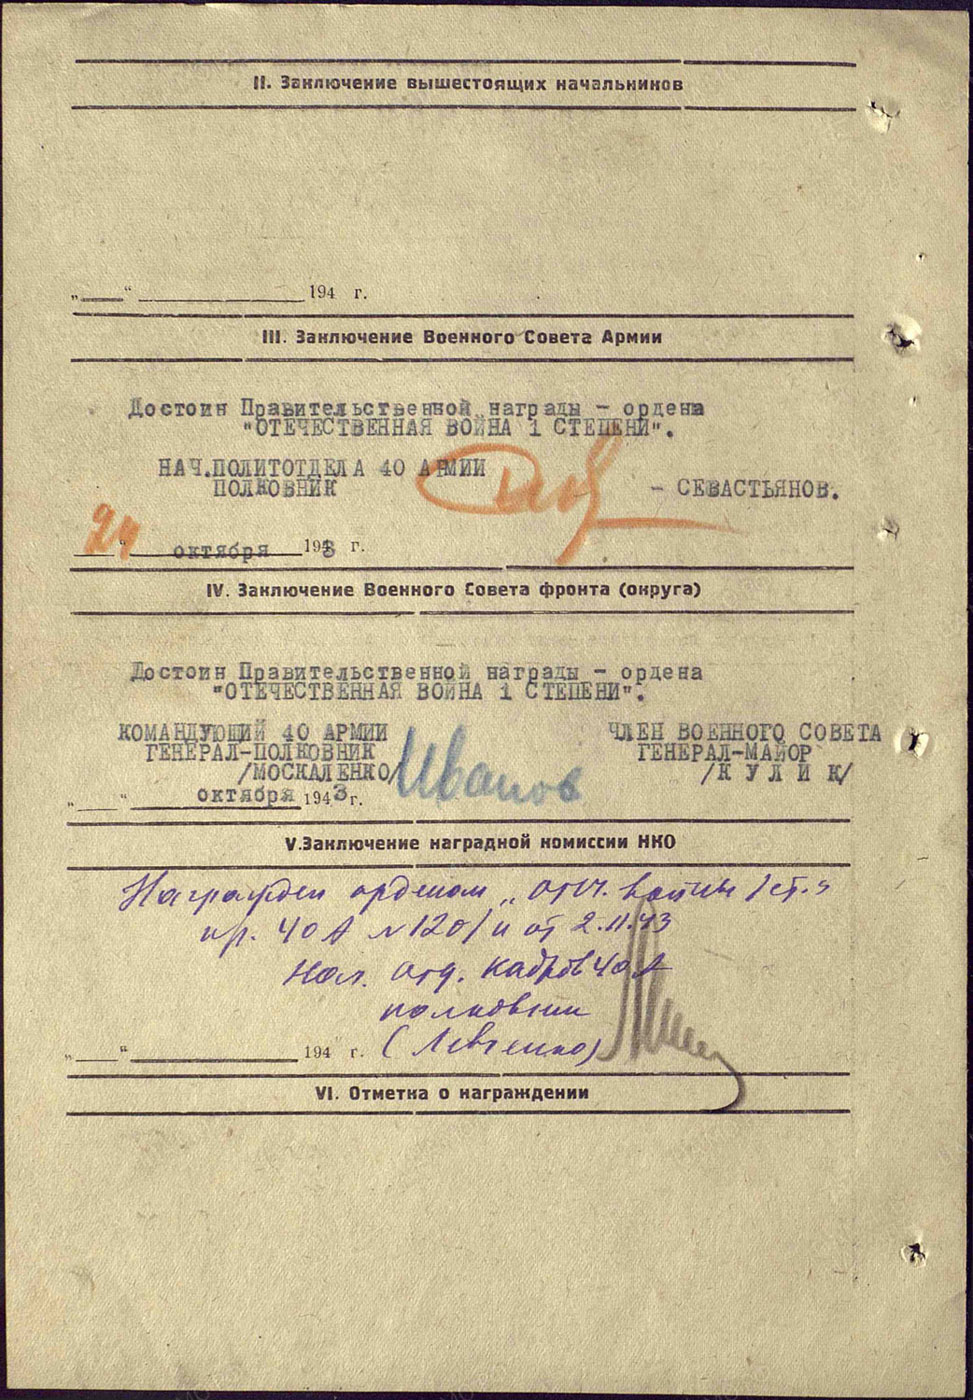 II. Заключение вышестоящих начальников
„ “ 194 г.
III. Заключение Военного Совета Армии
Достоин Правительственной награды - ордена
"ОТЕЧЕСТВЕННАЯ ВОЙНА 1 СТЕПЕНИ".
НАЧ.ПОЛИТОТДЕЛА 40 АРМИИ
ПОЛКОВНИК - СЕВАСТЬЯНОВ.
24 “ октября 1943 г.
IV. Заключение Военного Совета фронта (округа)
Достоин Правительственной награды - ордена
"ОТЕЧЕСТВЕННАЯ ВОЙНА 1 СТЕПЕНИ".
КОМАНДУЮЩИЙ 40 АРМИИ ЧЛЕН ВОЕННОГО СОВЕТА
ГЕНЕРАЛ-ПОЛКОВНИК ГЕНЕРАЛ-МАЙОР
/МОСКАЛЕНКО/ Иванов /К У Л И К/
„ “ октября 1943 г.
V.Заключение наградной комиссии НКО
Награжден орденом „Отеч. войны 1 ст.“
пр. 40 А №120/н от 2.11.43
Нач. отд. кадров 40 А
полковник
„ “ 194 г. (Левченко)
VI. Отметка о награждении